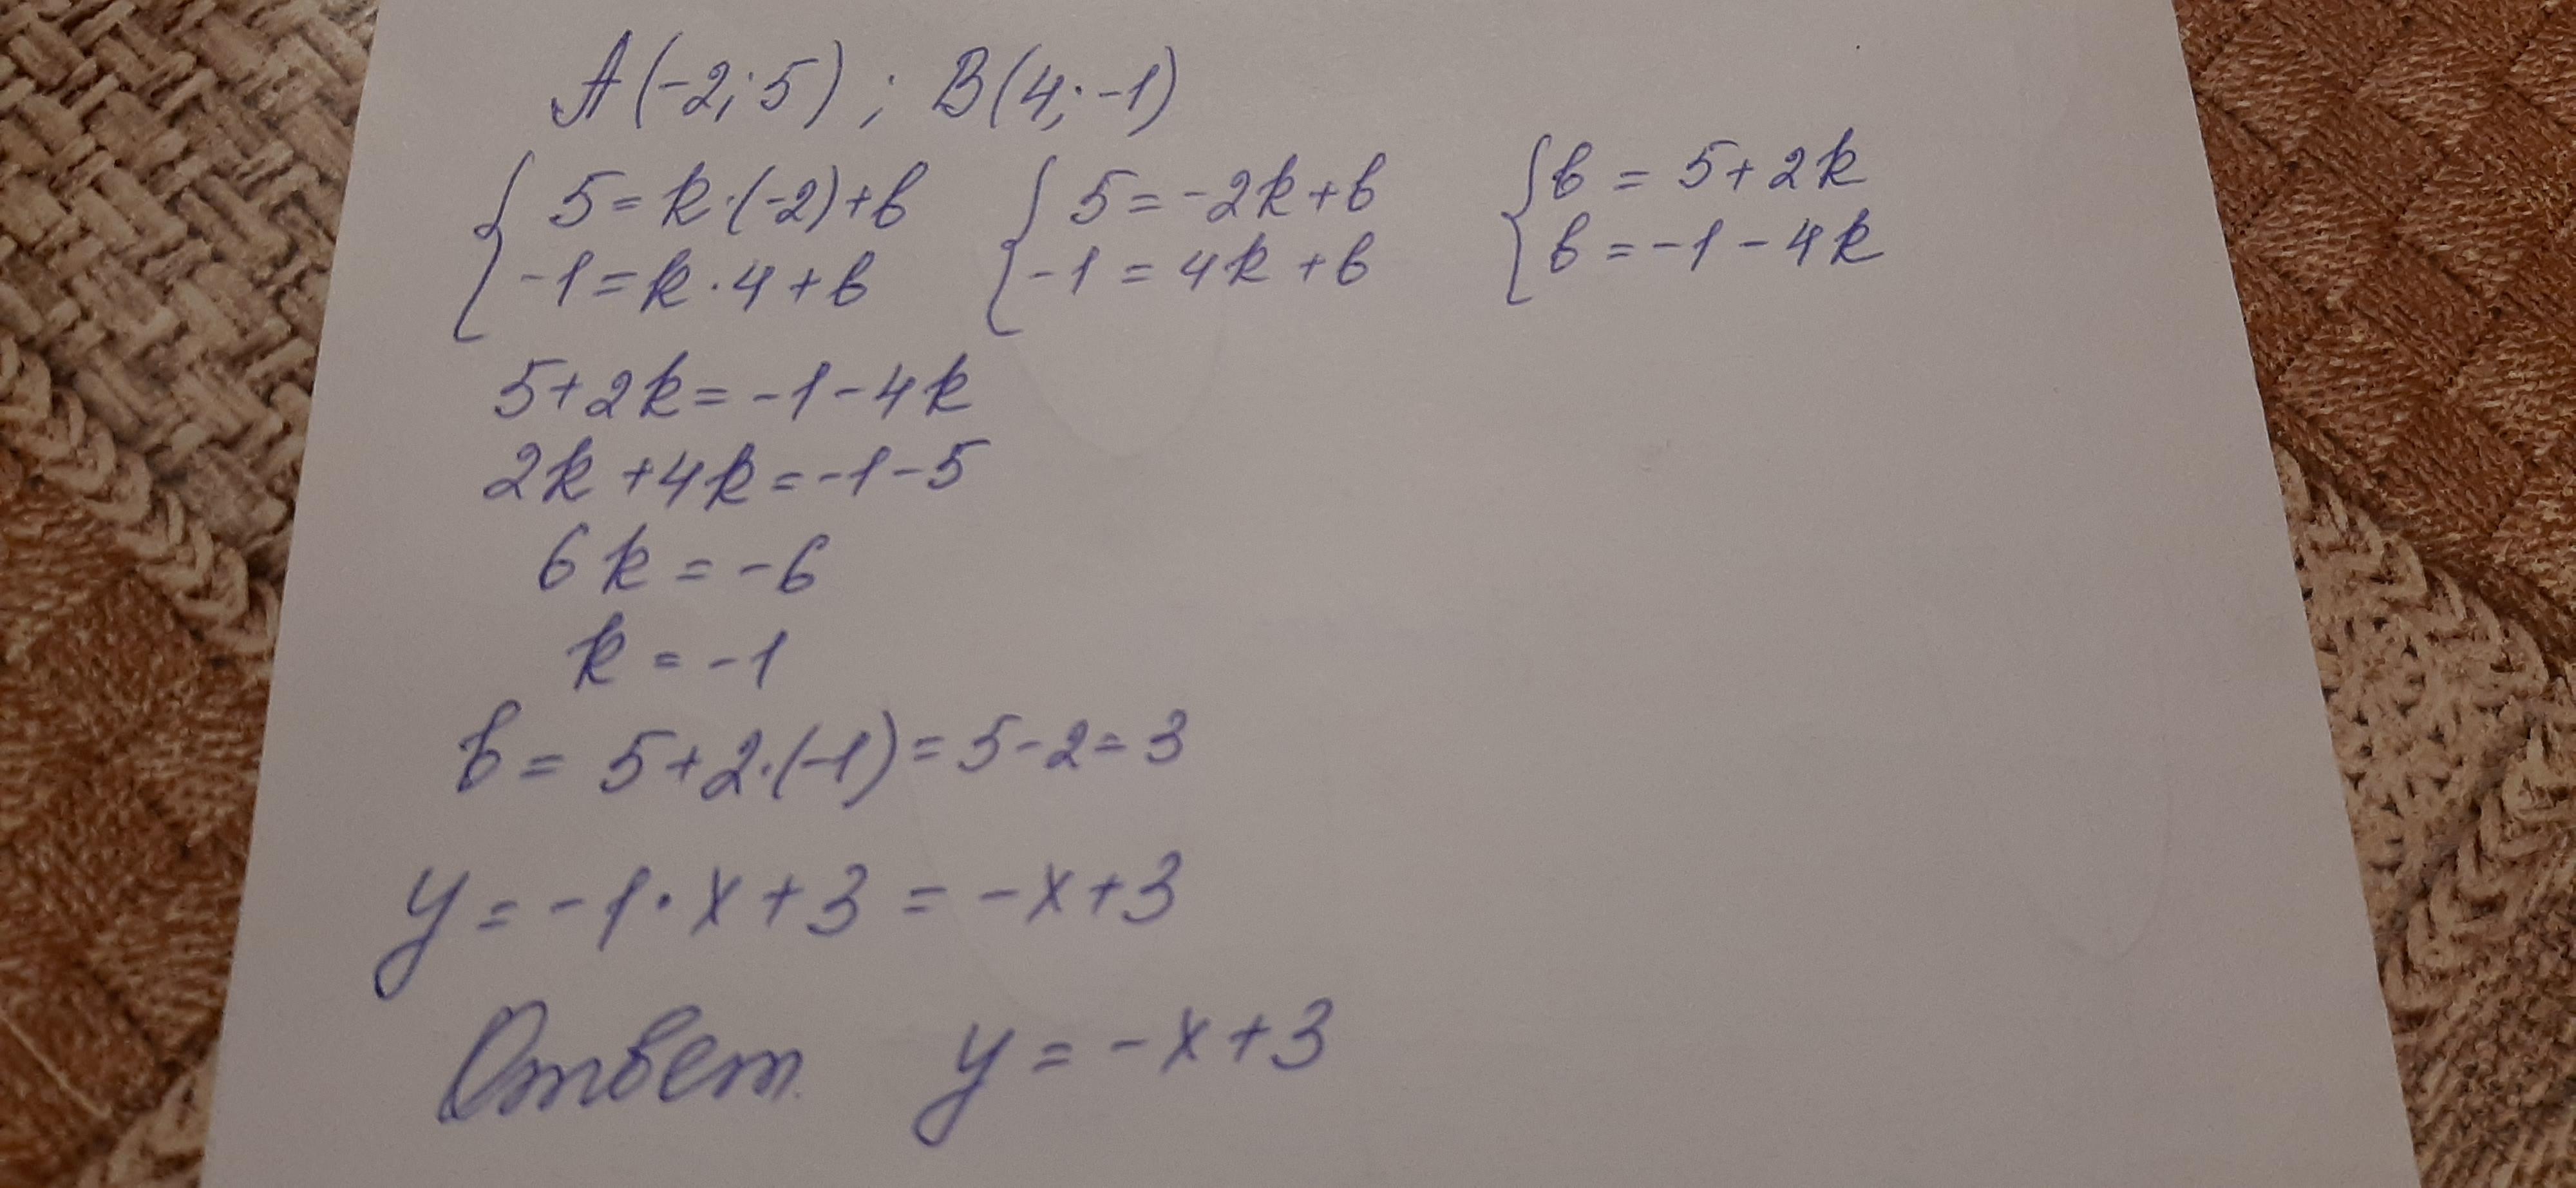 A(-2;5) ; B(4;-1)
{ 5=k·(-2)+b { 5=-2k+b { b = 5+2k
-1=k·4+b -1=4k+b b=-1-4k
5+2k=-1-4k
2k+4k=-1-5
6k=-6
k=-1
b= 5+2·(-1)=5-2=3
y=-1·x+3=-x+3
Ответ. y=-x+3